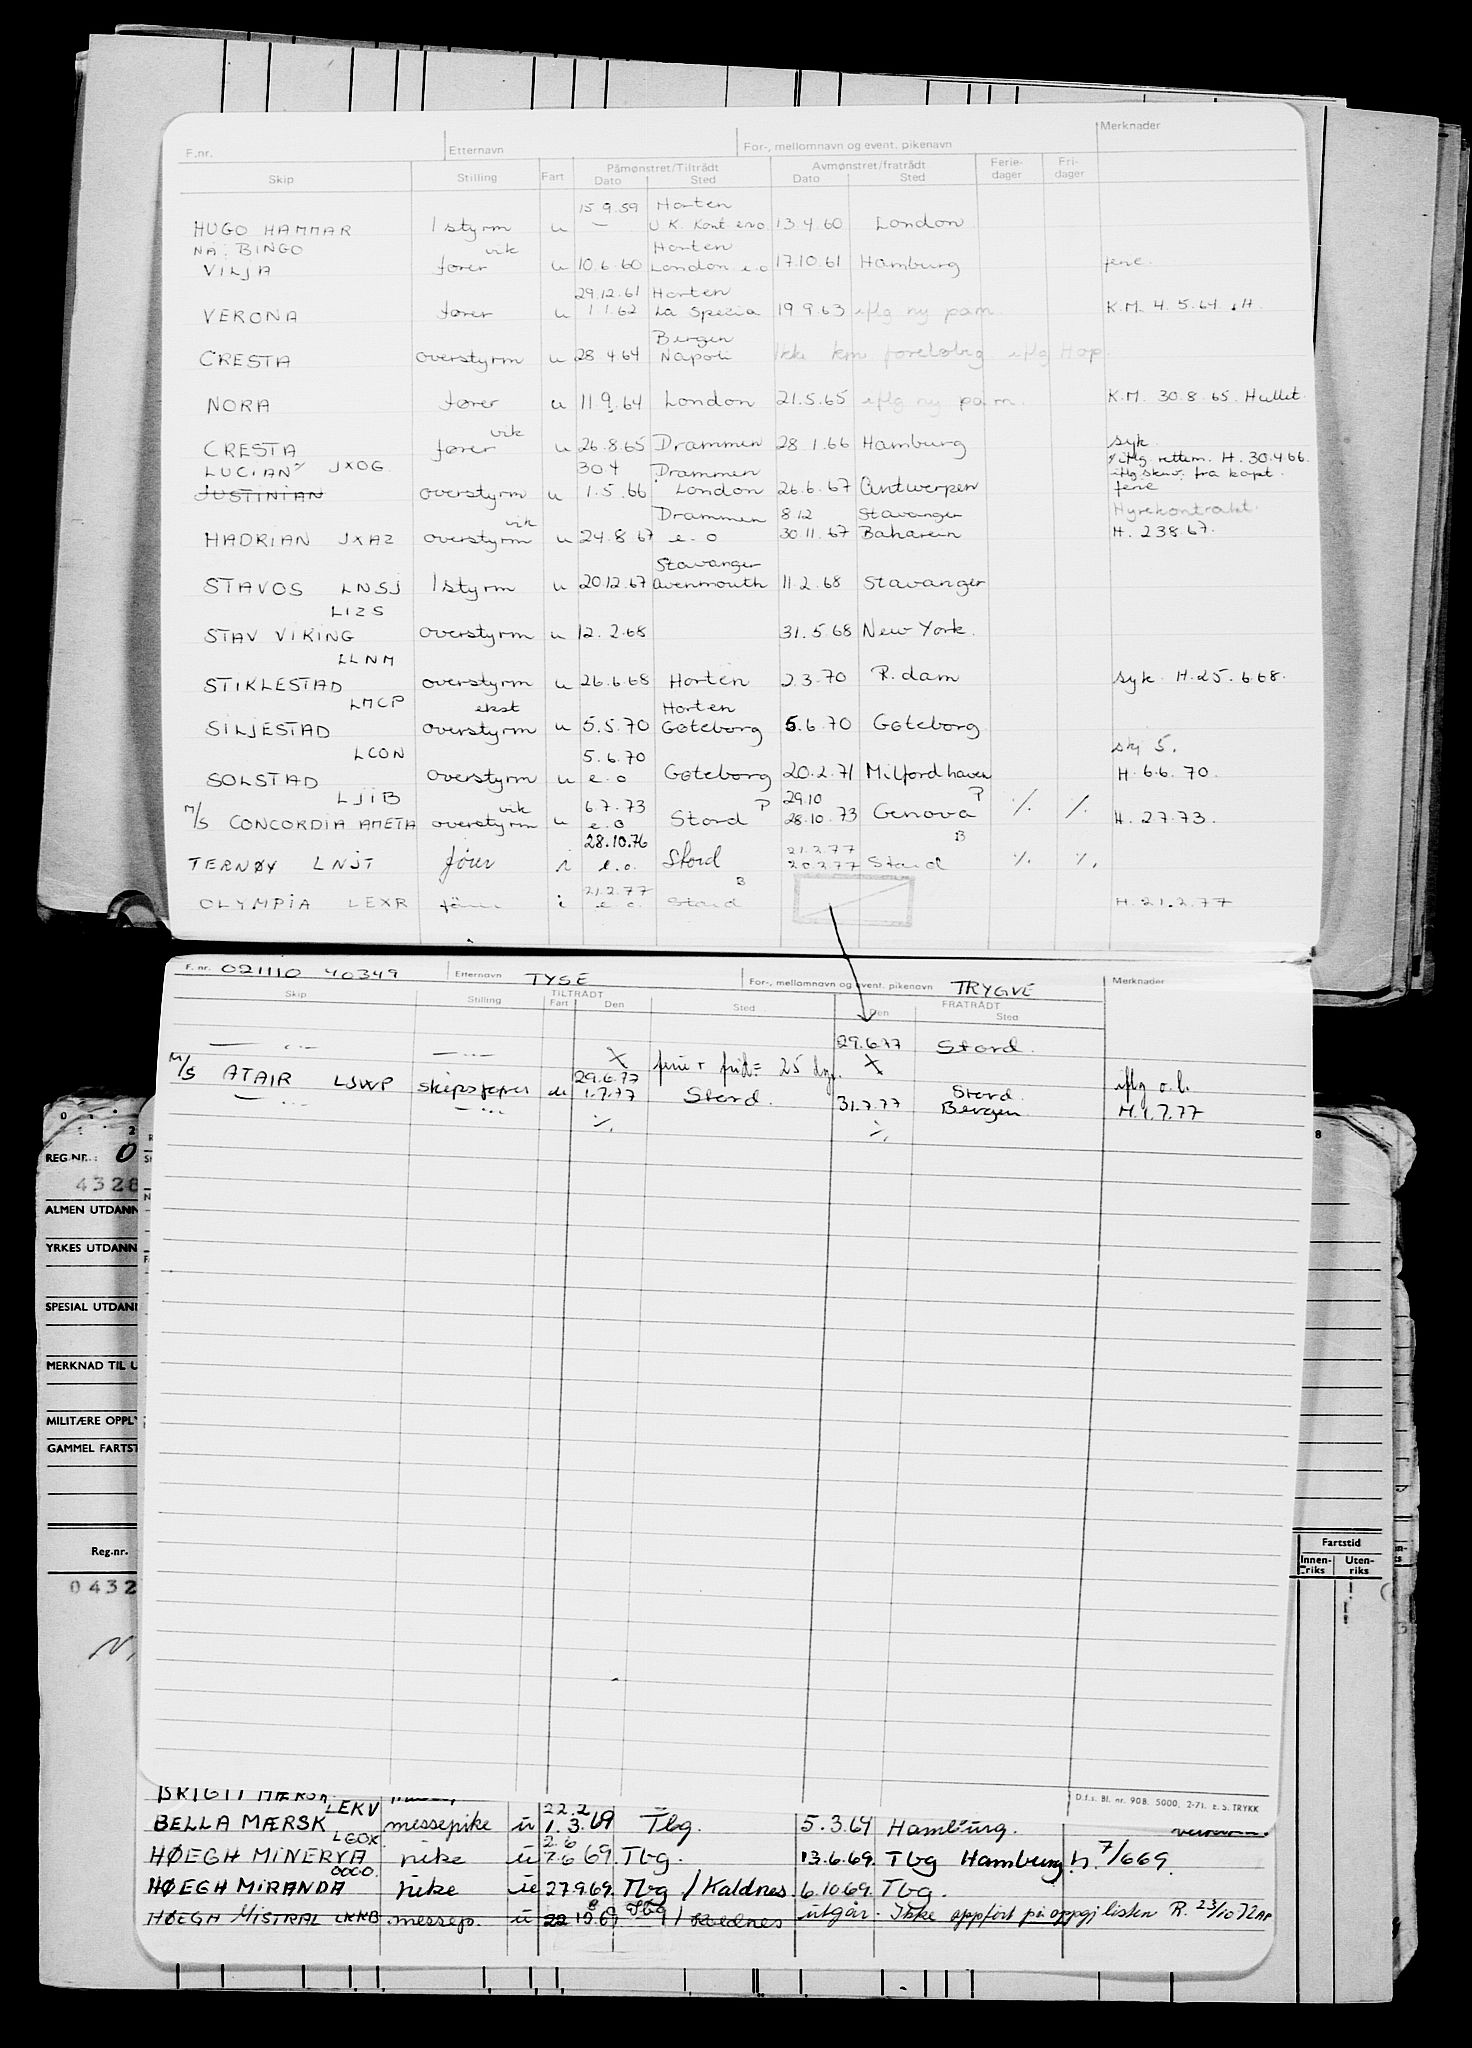 F.nr. Etternavn For-, mellomnavn og event. pikenavn Merknader
Skip Stilling Fart Påmønstret/Tiltrådt Dato Sted Avmønstret/fratrådt Dato Sted Ferie-dager Fri-dager
15.9.59 Horten
HUGO HAMMAR 1 styrm u — U.K. Kont e.o. 13.4.60 London
NÅ: BINGO vik Horten
VILJA fører u 10.6.60 London e.o 17.10.61 Hamburg ferie.
29.12.61 Horten
VERONA fører u 1.1.62 La Spezia 19.9.63 iflg ny påm K.M. 4.5.64. H.
Bergen
CRESTA overstyrm u 28.4.64 Napoli Ikke km foreløbig iflg Hop
NORA fører u 11.9.64 London 21.5.65 iflg ny påm. K.M. 30.8.65. Hullet.
vik
CRESTA fører u 26.8.65 Drammen 28.1.66 Hamburg syk.
LUCIAN JXOG 30 4 Drammen iflg rettem. H. 30.4.66.
JUSTINIAN overstyrm u 1.5.66 London 26.6.67 Antwerpen iflg skriv. fra kapt. ferie
vik Drammen 8.12 Stavanger Hyrekontrakt.
HADRIAN JXAZ overstyrm u 24.8.67 e.o 30.11.67 Baharein H. 23.8.67.
Stavanger
STAVOS LNSJ 1 styrm u 20.12.67 Avenmouth 11.2.68 Stavanger
LIZS
STAV VIKING overstyrm u 12.2.68 31.5.68 New York.
LLNM
STIKLESTAD overstyrm u 26.6.68 Horten 2.3.70 R.dam syk. H.25.6.68.
LMCP ekst Horten
SILJESTAD overstyrm u 5.5.70 Gøteborg 5.6.70 Gøteborg
LCON 5.6.70 skj 5.
SOLSTAD overstyrm u e.o Gøteborg 20.2.71 Milfordhaven H. 6.6.70.
LJIB vik 6.7.73 P 29.10 P
M/S CONCORDIA AMETA overstyrm u e.o Stord 28.10.73 Genova ./. ./. H. 2.7.73.
28.10.76 21.2.77 B
TERNØY LNJT fører i e.o. Stord 20.2.77 Stord ./. ./.
21.2.77 B
OLYMPIA LEXR fører i e.o. Stord H. 21.2.77
F.nr. 021110 40349 Etternavn TYSE For-, mellomnavn og event. pikenavn TRYGVE Merknader
Skip Stilling TILTRÅDT Fart Den Sted FRATRÅDT Den Sted
29.6.77 Stord.
X ferie + frid = 25 dgr. X
M/S ATAIR LJWP skipsfører u 29.6.77 1.7.77 Stord. Stord. iflg o.l.
31.7.77 Bergen H.1.7.77
./. ./.
REG.NR.: 0
4328
ALMEN UTDANN
YRKES UTDANN
SPESIAL UTDANN
MERKNAD TIL U
MILITÆRE OPPLY
GAMMEL FARTST
Reg.nr. Fartstid
Innen-riks Uten-riks
0432
D.f.s. Bl. nr. 908. 5000. 2-71. E.S. TRYKK
BRIGIT MÆRSK
LEKV 22.2
BELLA MÆRSK messepike u 1.3.69 Tbg. 5.3.69 Hamburg.
LEOX 2.6
HØEGH MINERVA pike u 7.6 69 Tbg. 13.6.69. Tbg Hamburg h. 7/6 69.
HØEGH MIRANDA pike u 27.9.69. Tbg / Kaldnes 6.10.69. Tbg.
HØEGH MISTRAL LKKB messep. u 22 10.69 Tbg / Kaldnes utgår. Ikke oppført på oppgj listen R. 23/10 72